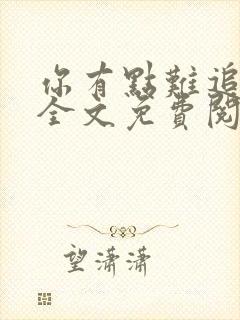 你有點難追
全文免費閱
望瀟瀟